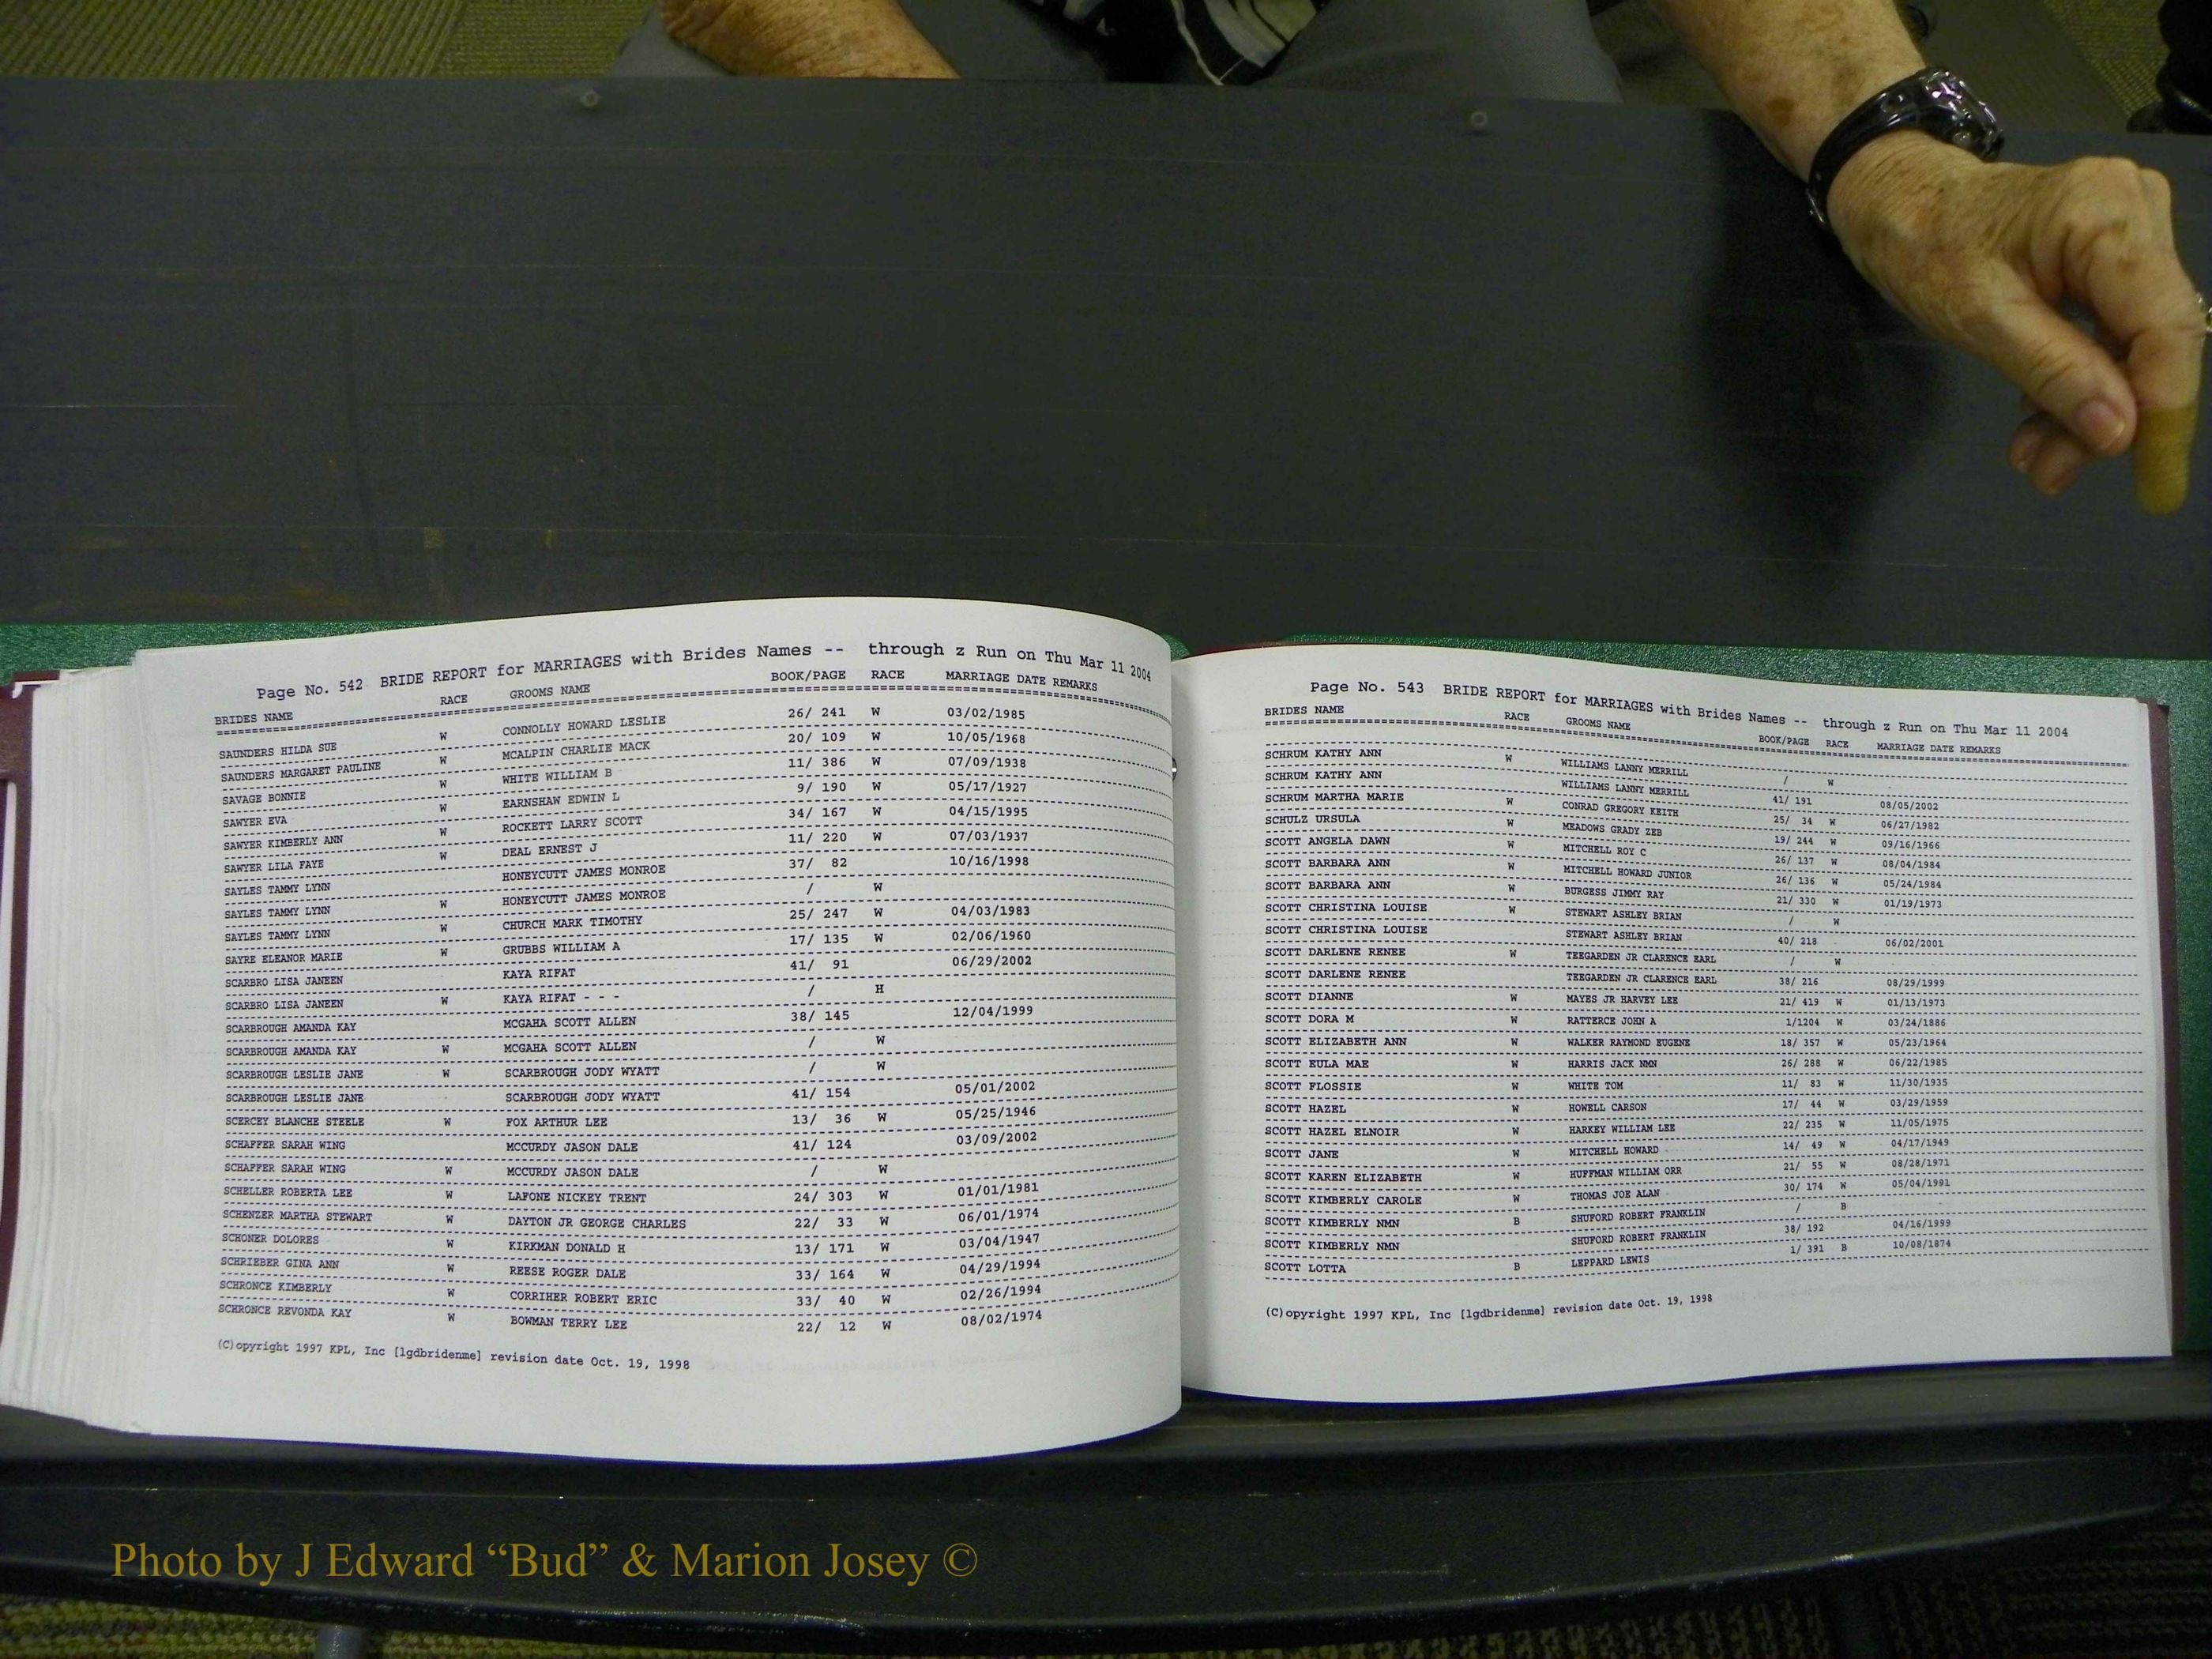 Page No. 542 BRIDE REPORT for MARRIAGES with Brides Names -- through z Run on Thu Mar 11 2004
BRIDES NAME RACE GROOMS NAME BOOK/PAGE RACE MARRIAGE DATE REMARKS
SAUNDERS HILDA SUE W CONNOLLY HOWARD LESLIE 26/ 241 W 03/02/1985
SAUNDERS MARGARET PAULINE W MCALPIN CHARLIE MACK 20/ 109 W 10/05/1968
SAVAGE BONNIE W WHITE WILLIAM B 11/ 386 W 07/09/1938
SAWYER EVA W EARNSHAW EDWIN L 9/ 190 W 05/17/1927
SAWYER KIMBERLY ANN W ROCKETT LARRY SCOTT 34/ 167 W 04/15/1995
SAWYER LILA FAYE W DEAL ERNEST J 11/ 220 W 07/03/1937
SAYLES TAMMY LYNN HONEYCUTT JAMES MONROE 37/ 82 10/16/1998
SAYLES TAMMY LYNN W HONEYCUTT JAMES MONROE / W
SAYLES TAMMY LYNN W CHURCH MARK TIMOTHY 25/ 247 W 04/03/1983
SAYRE ELEANOR MARIE W GRUBBS WILLIAM A 17/ 135 W 02/06/1960
SCARBRO LISA JANEEN KAYA RIFAT 41/ 91 06/29/2002
SCARBRO LISA JANEEN W KAYA RIFAT - - - / H
SCARBROUGH AMANDA KAY MCGAHA SCOTT ALLEN 38/ 145 12/04/1999
SCARBROUGH AMANDA KAY W MCGAHA SCOTT ALLEN / W
SCARBROUGH LESLIE JANE W SCARBROUGH JODY WYATT / W
SCARBROUGH LESLIE JANE SCARBROUGH JODY WYATT 41/ 154 05/01/2002
SCERCEY BLANCHE STEELE W FOX ARTHUR LEE 13/ 36 W 05/25/1946
SCHAFFER SARAH WING MCCURDY JASON DALE 41/ 124 03/09/2002
SCHAFFER SARAH WING W MCCURDY JASON DALE / W
SCHELLER ROBERTA LEE W LAFONE NICKEY TRENT 24/ 303 W 01/01/1981
SCHENZER MARTHA STEWART W DAYTON JR GEORGE CHARLES 22/ 33 W 06/01/1974
SCHONER DOLORES W KIRKMAN DONALD H 13/ 171 W 03/04/1947
SCHRIEBER GINA ANN W REESE ROGER DALE 33/ 164 W 04/29/1994
SCHRONCE KIMBERLY W CORRIHER ROBERT ERIC 33/ 40 W 02/26/1994
SCHRONCE REVONDA KAY W BOWMAN TERRY LEE 22/ 12 W 08/02/1974
(C)opyright 1997 KPL, Inc [lgdbridenme] revision date Oct. 19, 1998
Page No. 543 BRIDE REPORT for MARRIAGES with Brides Names -- through z Run on Thu Mar 11 2004
BRIDES NAME RACE GROOMS NAME BOOK/PAGE RACE MARRIAGE DATE REMARKS
SCHRUM KATHY ANN W WILLIAMS LANNY MERRILL / W
SCHRUM KATHY ANN WILLIAMS LANNY MERRILL 41/ 191 08/05/2002
SCHRUM MARTHA MARIE W CONRAD GREGORY KEITH 25/ 34 W 06/27/1982
SCHULZ URSULA W MEADOWS GRADY ZEB 19/ 244 W 09/16/1966
SCOTT ANGELA DAWN W MITCHELL ROY C 26/ 137 W 08/04/1984
SCOTT BARBARA ANN W MITCHELL HOWARD JUNIOR 26/ 136 W 05/24/1984
SCOTT BARBARA ANN W BURGESS JIMMY RAY 21/ 330 W 01/19/1973
SCOTT CHRISTINA LOUISE W STEWART ASHLEY BRIAN / W
SCOTT CHRISTINA LOUISE STEWART ASHLEY BRIAN 40/ 218 06/02/2001
SCOTT DARLENE RENEE W TEEGARDEN JR CLARENCE EARL / W
SCOTT DARLENE RENEE TEEGARDEN JR CLARENCE EARL 38/ 216 08/29/1999
SCOTT DIANNE W MAYES JR HARVEY LEE 21/ 419 W 01/13/1973
SCOTT DORA M W RATTERCE JOHN A 1/1204 W 03/24/1886
SCOTT ELIZABETH ANN W WALKER RAYMOND EUGENE 18/ 357 W 05/23/1964
SCOTT EULA MAE W HARRIS JACK NMN 26/ 288 W 06/22/1985
SCOTT FLOSSIE W WHITE TOM 11/ 83 W 11/30/1935
SCOTT HAZEL W HOWELL CARSON 17/ 44 W 03/29/1959
SCOTT HAZEL ELNOIR W HARKEY WILLIAM LEE 22/ 235 W 11/05/1975
SCOTT JANE W MITCHELL HOWARD 14/ 49 W 04/17/1949
SCOTT KAREN ELIZABETH W HUFFMAN WILLIAM ORR 21/ 55 W 08/28/1971
SCOTT KIMBERLY CAROLE W THOMAS JOE ALAN 30/ 174 W 05/04/1991
SCOTT KIMBERLY NMN B SHUFORD ROBERT FRANKLIN / B
SCOTT KIMBERLY NMN SHUFORD ROBERT FRANKLIN 38/ 192 04/16/1999
SCOTT LOTTA B LEPPARD LEWIS 1/ 391 B 10/08/1874
(C)opyright 1997 KPL, Inc [lgdbridenme] revision date Oct. 19, 1998
Photo by J Edward “Bud” & Marion Josey ©